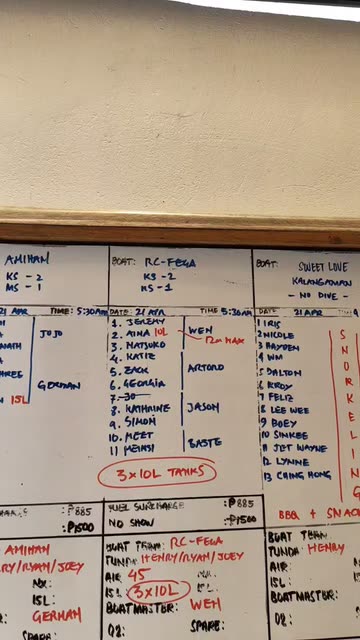 AMIHAN
KS - 2
MS - 1
21 APR TIME: 5:30am
JOJO
GERMAN
15L
₱885
₱1500
AMIHAN
RY/RYAN/JOEY
NX:
15L:
GERMAN
SPARE:
BOAT: RC-FEGA
KS - 2
KS - 1
DATE: 21 APR TIME 5:30am
1. JEREMY
2. AINA 10L
WEN
12m MAX
3. NATSUKO
4. KATIE
5. ZACK
ARTORO
6. GEORGIA
7. JO
8. KATHRINE
JASON
9. SIMON
10. MEET
BASTE
11 MEHSI
3X10L TANKS
FUEL SURCHARGE :₱885
NO SHOW :₱1500
BOAT TEAM: RC-FEGA
TUNDA: HENRY/RYAN/JOEY
AIR: 45
15L: 3X10L
BOATMASTER: WEN
O2: SPARE:
SWEET LOVE
KALANGAMAN
- NO DIVE -
DATE: 21 APR
1 IRIS
2 NICOLE
3 HAYDEN
4 WM
5 DALTON
6 KROY
7 FELIZ
8 LEE WEE
9 BOEY
10 SINKEE
11 JET WAYNE
12 LYNNE
13 CHING HONG
SNORKELING
BBQ + SNAC
BOAT TEAM
TUNDA: HENRY
AIR:
15L:
BOATMASTER:
O2: